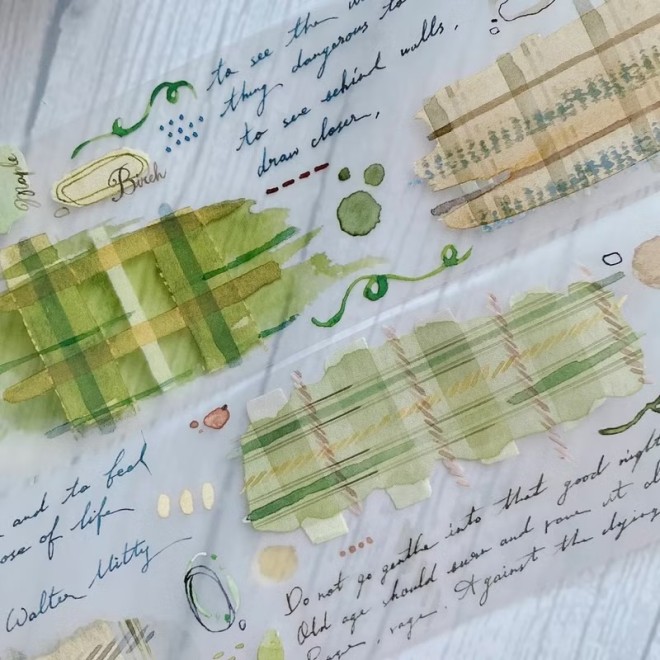 to see the
thing dangerous to
to see behind walls,
draw closer,
Birch
and to feel
of life
Walter Mitty
Do not go gentle into that good night
Old age should burn and rave at
Rage, rage. Against the dying